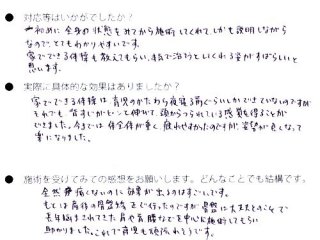 ● 対応等はいかがでしたか？
初めに全身の状態をみてから施術してくれて、しかも説明しながら
なので、とてもわかりやすいです。
家でできる体操も教えてもらい、本気で治そうとしてくれる姿がすばらしいと
思います。
● 実際に具体的な効果はありましたか？
家でできる体操は、育児のかたわら夜寝る前ぐらいしかできていないのですが
それでも、背すじがピーンと伸びて、頭からつられている感覚を得ることが
できました。今までは体全体が重く、疲れやすかったのですが、姿勢が良くなって
楽になりました。
● 施術を受けてみての感想をお願いします。どんなことでも結構です。
全然痛くないのに効果が出るのはすごいです。
もとは産後の骨盤矯正で行ったのですが骨盤は大丈夫とのことで
長年悩まされてきた肩や首腰などを中心に施術してもらい
助かりました。これで育児も頑張れそうです。